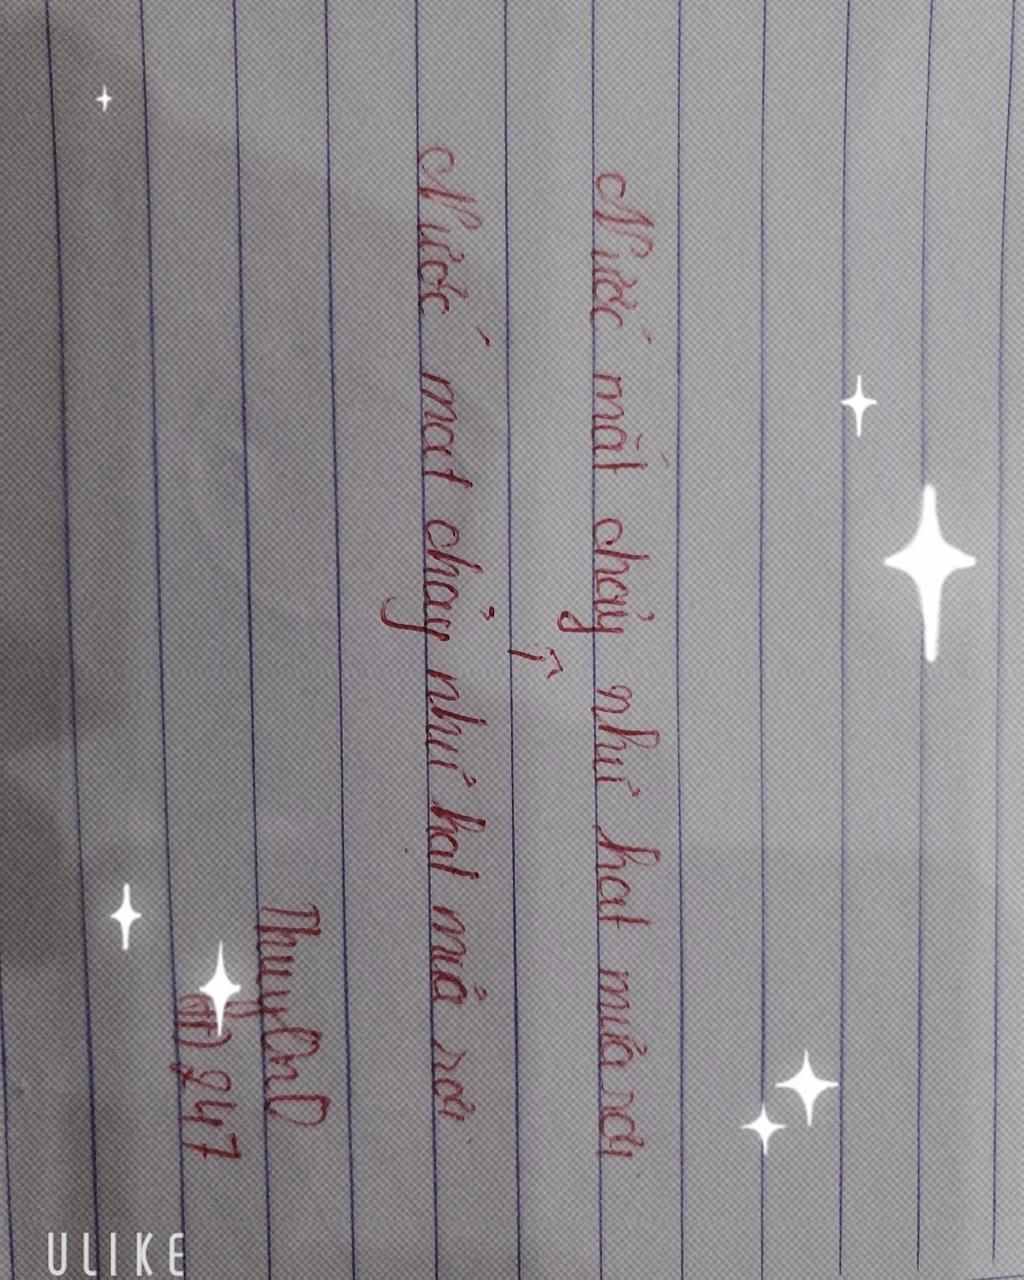 Nước mắt chảy như hạt mưa rơi
Nước mắt chảy như hạt mưa rơi
247
ULIKE